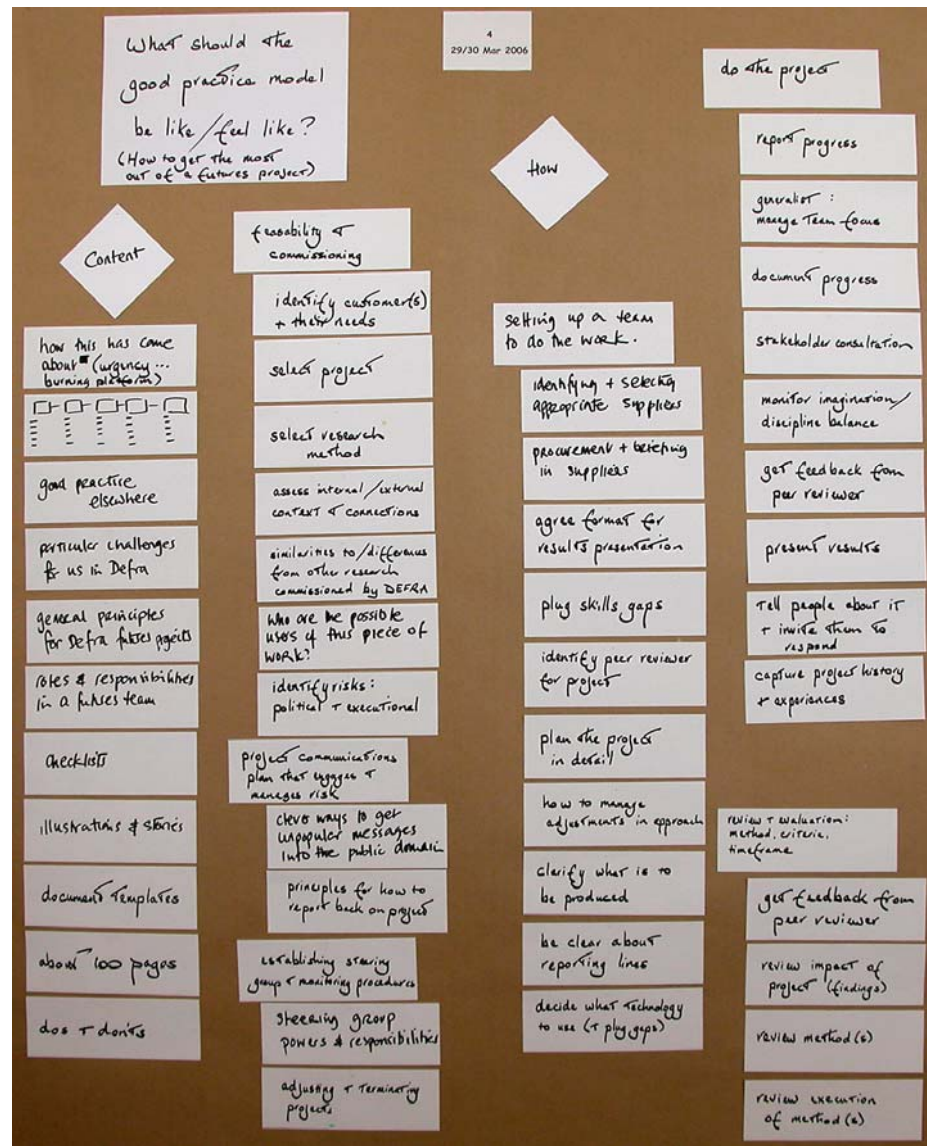 What should the
good practice model
be like/feel like?
(How to get the most
out of a futures project)
4
29/30 Mar 2006
Content
how this has come
about (urgency...
burning platform)
good practice
elsewhere
particular challenges
for us in Defra
general principles
for Defra futures agents
roles & responsibilities
in a futures team
checklists
illustrations & stories
document templates
about 100 pages
dos + don'ts
feasability +
commissioning
identify customer(s)
+ their needs
select project
select research
method
assess internal/external
context + connections
similarities to/differences
from other research
commissioned by DEFRA
Who are the possible
users of this piece of
work?
identify risks:
political + executional
project communications
plan that engages +
manages risk
clever ways to get
unpopular messages
into the public domain
principles for how to
report back on project
establishing steering
group + monitoring procedures
steering group
powers & responsibilities
adjusting + terminating
projects
How
setting up a team
to do the work.
identifying + selecting
appropriate suppliers
procurement + briefing
in suppliers
agree format for
results presentation
plug skills gaps
identify peer reviewer
for project
plan the project
in detail
how to manage
adjustments in approach
clarify what is to
be produced
be clear about
reporting lines
decide what technology
to use (+ plug gaps)
do the project
report progress
generalist:
manage team focus
document progress
stakeholder consultation
monitor imagination/
discipline balance
get feedback from
peer reviewer
present results
tell people about it
+ invite them to
respond
capture project history
+ experiences
review + evaluation:
method, criteria,
timeframe
get feedback from
peer reviewer
review impact of
project (findings)
review method(s)
review execution
of method(s)